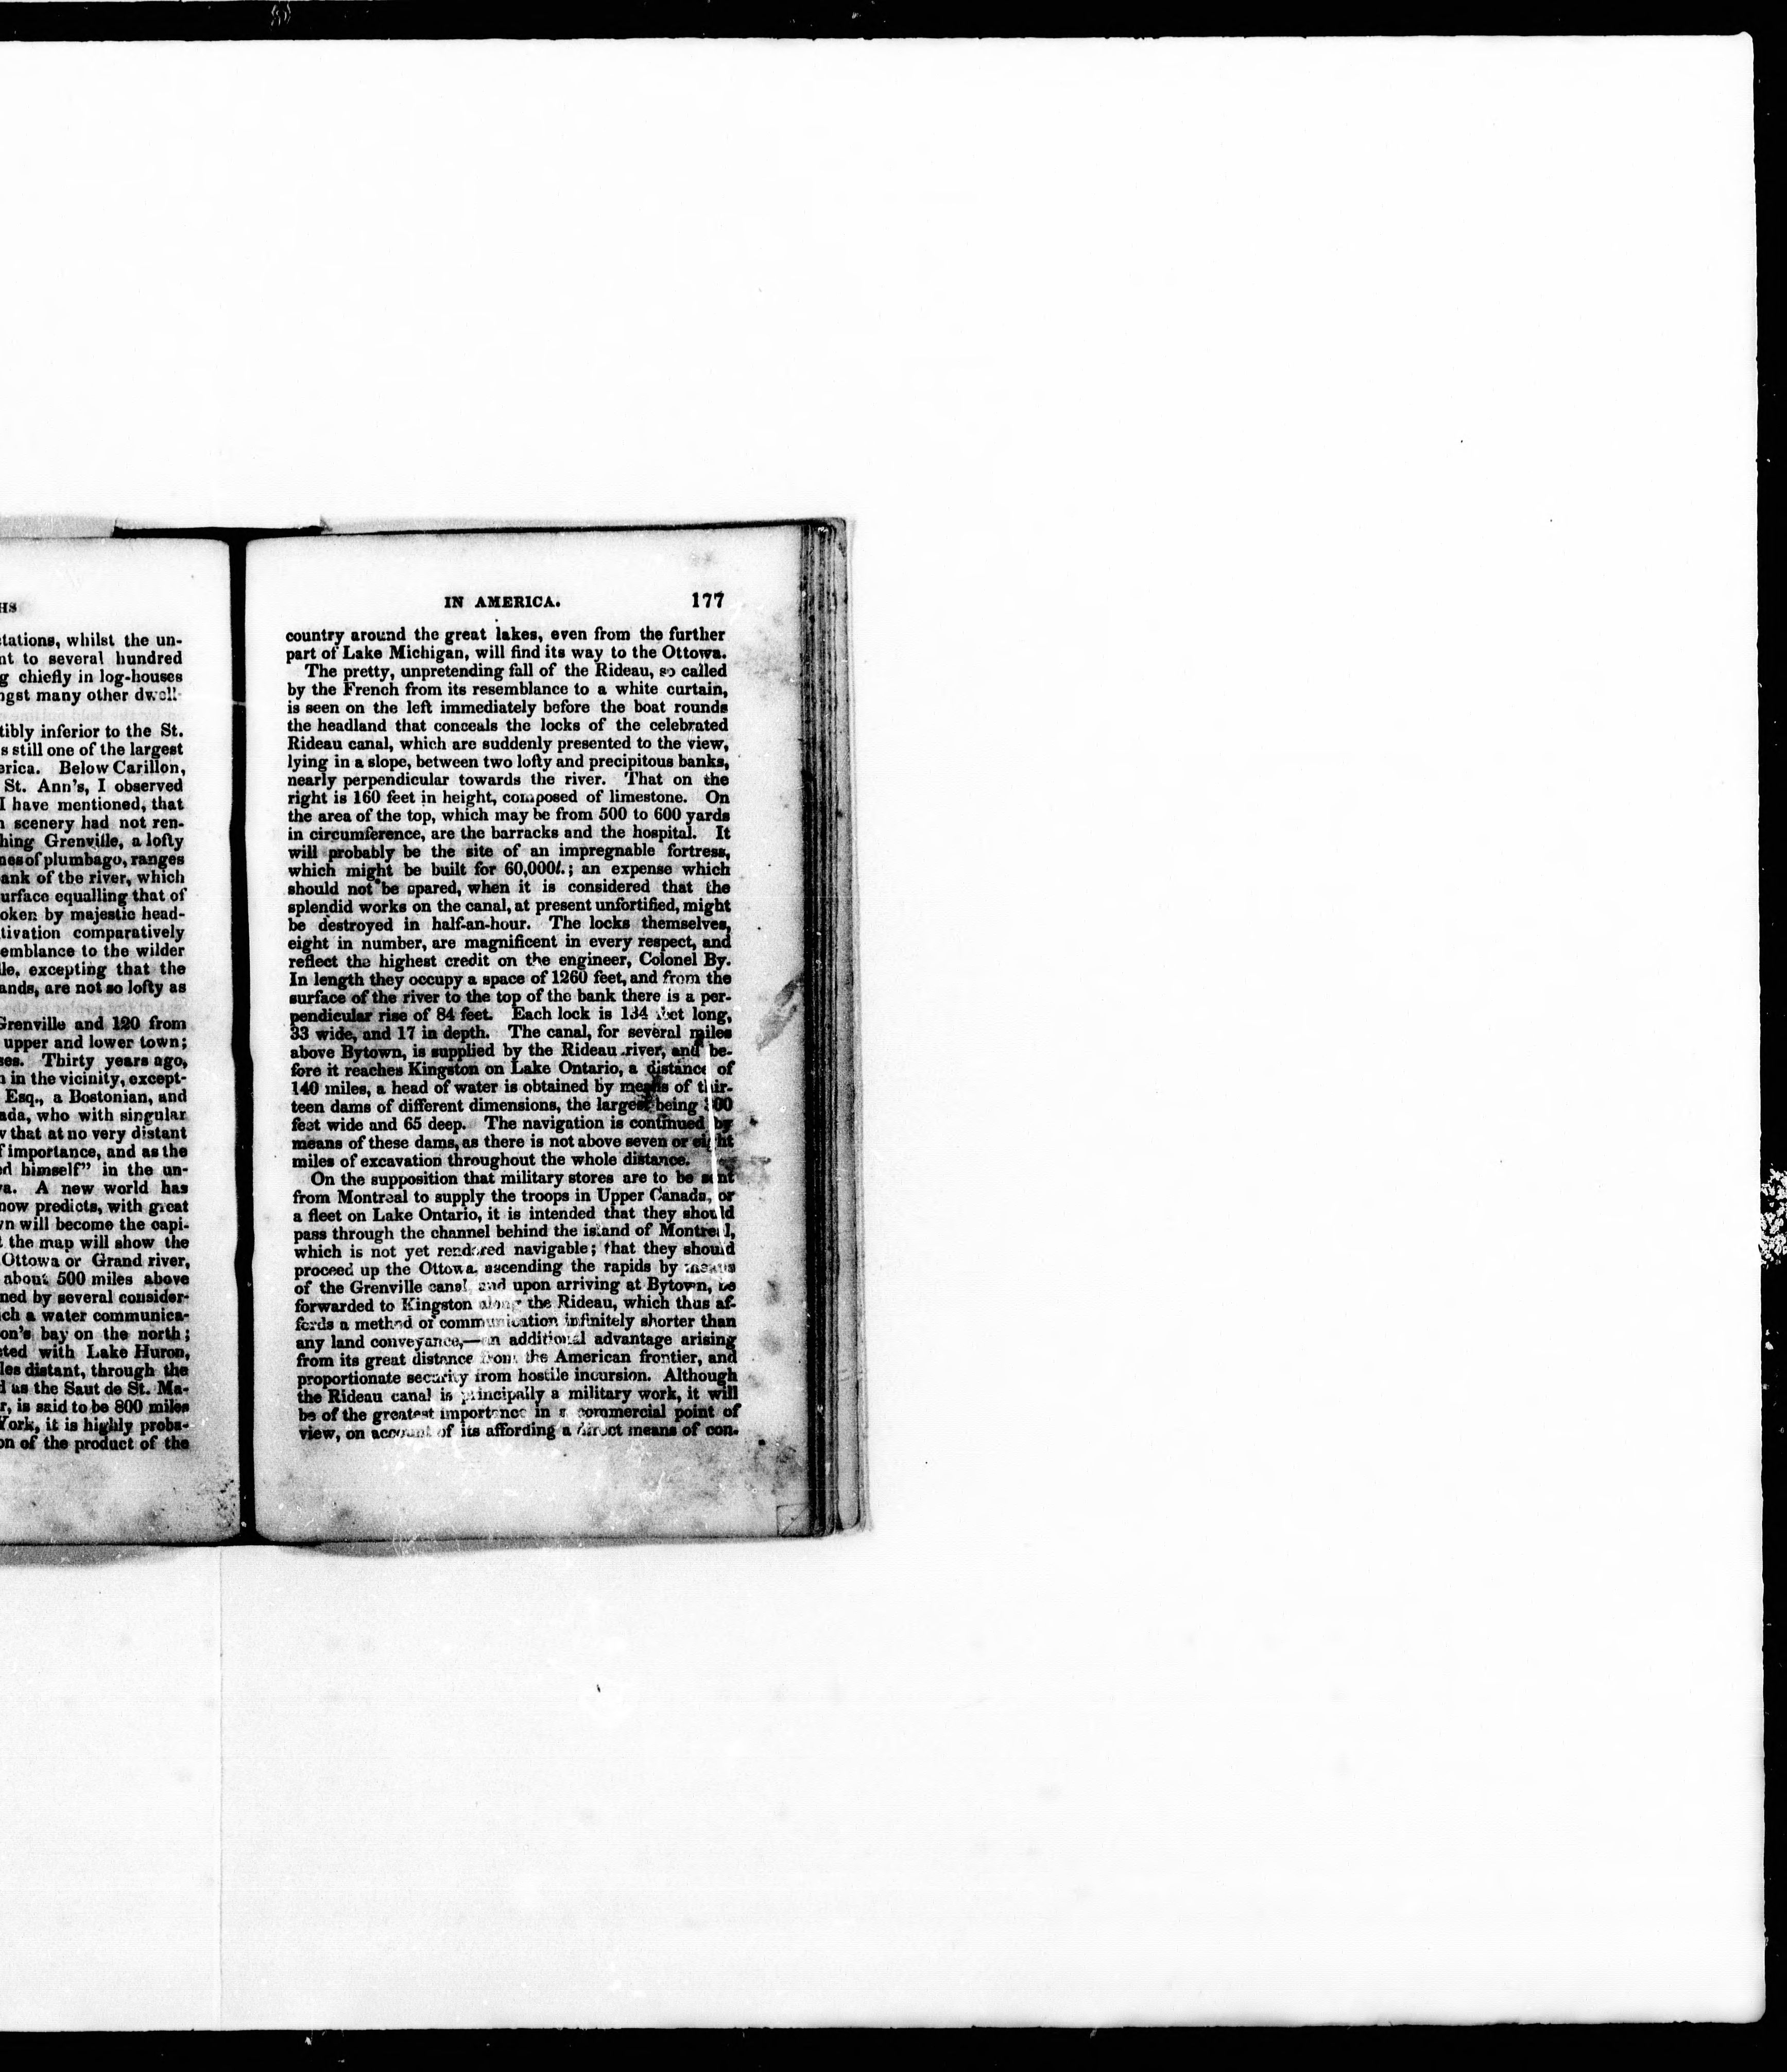 HS
tations, whilst the un-
nt to several hundred
g chiefly in log-houses
ngst many other dwell-
tibly inferior to the St.
s still one of the largest
erica. Below Carillon,
St. Ann's, I observed
I have mentioned, that
n scenery had not ren-
hing Grenville, a lofty
nes of plumbago, ranges
ank of the river, which
urface equalling that of
oken by majestic head-
tivation comparatively
emblance to the wilder
lle, excepting that the
ands, are not so lofty as
Grenville and 120 from
upper and lower town;
ses. Thirty years ago,
n in the vicinity, except-
Esq., a Bostonian, and
ada, who with singular
w that at no very distant
f importance, and as the
ed himself" in the un-
va. A new world has
now predicts, with great
wn will become the capi-
t the map will show the
Ottowa or Grand river,
about 500 miles above
ned by several consider-
ich a water communica-
on's bay on the north;
cted with Lake Huron,
les distant, through the
d as the Saut de St. Ma-
r, is said to be 800 miles
York, it is highly proba-
on of the product of the
IN AMERICA. 177
country around the great lakes, even from the further
part of Lake Michigan, will find its way to the Ottowa.
The pretty, unpretending fall of the Rideau, so called
by the French from its resemblance to a white curtain,
is seen on the left immediately before the boat rounds
the headland that conceals the locks of the celebrated
Rideau canal, which are suddenly presented to the view,
lying in a slope, between two lofty and precipitous banks,
nearly perpendicular towards the river. That on the
right is 160 feet in height, composed of limestone. On
the area of the top, which may be from 500 to 600 yards
in circumference, are the barracks and the hospital. It
will probably be the site of an impregnable fortress,
which might be built for 60,000l.; an expense which
should not be spared, when it is considered that the
splendid works on the canal, at present unfortified, might
be destroyed in half-an-hour. The locks themselves,
eight in number, are magnificent in every respect, and
reflect the highest credit on the engineer, Colonel By.
In length they occupy a space of 1260 feet, and from the
surface of the river to the top of the bank there is a per-
pendicular rise of 84 feet. Each lock is 134 feet long,
33 wide, and 17 in depth. The canal, for several miles
above Bytown, is supplied by the Rideau river, and be-
fore it reaches Kingston on Lake Ontario, a distance of
140 miles, a head of water is obtained by means of thir-
teen dams of different dimensions, the largest being
feet wide and 65 deep. The navigation is continued by
means of these dams, as there is not above seven or eight
miles of excavation throughout the whole distance.
On the supposition that military stores are to be sent
from Montreal to supply the troops in Upper Canada, or
a fleet on Lake Ontario, it is intended that they should
pass through the channel behind the island of Montreal,
which is not yet rendered navigable; that they should
proceed up the Ottowa, ascending the rapids by means
of the Grenville canal, and upon arriving at Bytown, be
forwarded to Kingston along the Rideau, which thus af-
fords a method of communication infinitely shorter than
any land conveyance,—an additional advantage arising
from its great distance from the American frontier, and
proportionate security from hostile incursion. Although
the Rideau canal is principally a military work, it will
be of the greatest importance in a commercial point of
view, on account of its affording a direct means of con-